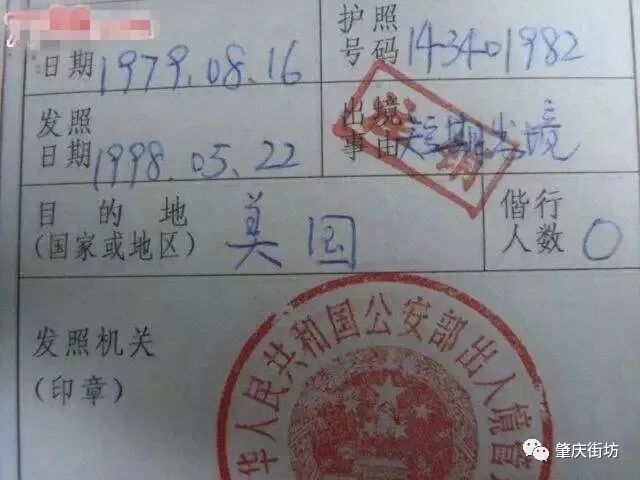 日期 1979.08.16
护照号码 143401982
发照日期 1998.05.22
出境事由 短期出境
目的地
(国家或地区) 美国
偕行人数 0
发照机关
(印章)
华人民共和国公安部出入境管
肇庆街坊